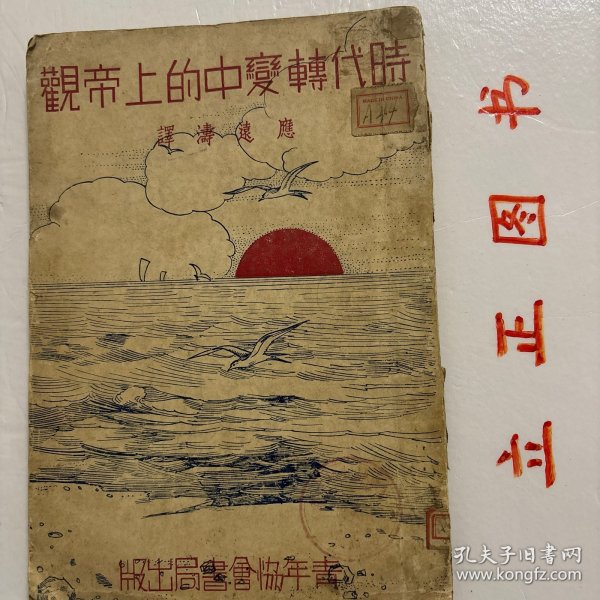 時代轉變中的上帝觀
應遠濤譯
青年協會書局出版
立正图书
孔夫子旧书网
www.kongfz.com